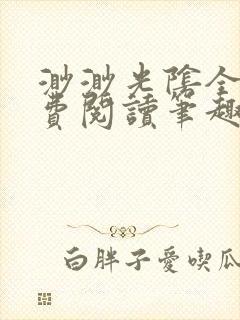 渺渺光陰全
費閱讀筆趣
白胖子愛喫瓜